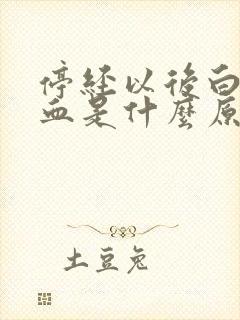 停经以後白
血是什麼原
土豆兔